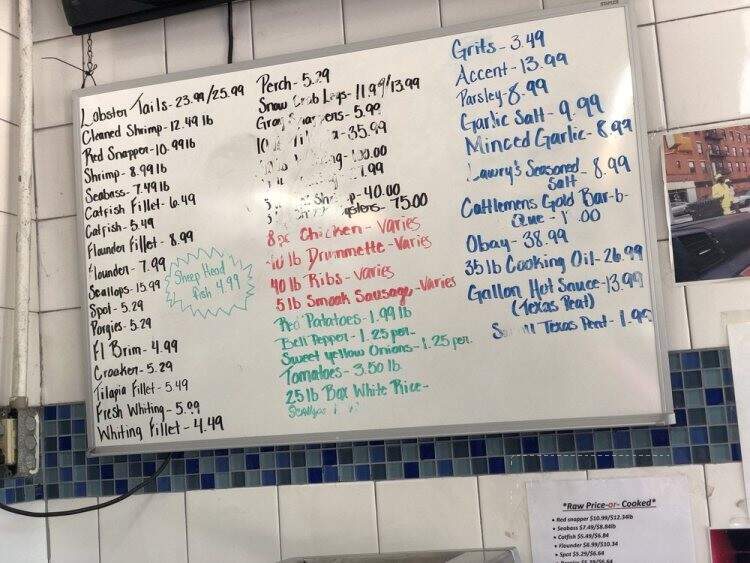 Lobster Tails - 23.99/25.99
Cleaned Shrimp - 12.49 lb
Red Snapper - 10.99 lb
Shrimp - 8.99 lb
Seabass - 7.49 lb
Catfish Fillet - 6.49
Catfish - 5.49
Flounder Fillet - 8.99
Flounder - 7.99
Scallops - 15.99
Spot - 5.29
Porgies - 5.29
Fl Brim - 4.99
Croaker - 5.29
Tilapia Fillet - 5.49
Fresh Whiting - 5.99
Whiting Fillet - 4.49
Sheep Head
fish 4.99
Perch - 5.29
Snow Crab Legs - 11.99/13.99
5.99
35.99
.00
.99
40.00
75.00
8pc Chicken - Varies
10 lb Drummette - Varies
40 lb Ribs - Varies
5 lb Smoak Sausage - Varies
Red Patatoes - 1.99 lb
Bell Pepper - 1.25 per.
Sweet yellow Onions - 1.25 per.
Tomatoes - 3.50 lb
25 lb Box White Rice -
Grits - 3.49
Accent - 13.99
Parsley - 8.99
Garlic Salt - 9.99
Minced Garlic - 8.99
Lawry's Seasoned - 8.99
Salt
Cattlemens Gold Bar-b-
Que - .00
Obay - 38.99
35 lb Cooking Oil - 26.99
Gallon Hot Sauce - 13.99
(Texas Peat)
Texas Peat - 1.99
*Raw Price-or- Cooked*
• Red snapper $10.99/$12.34lb
• Seabass $7.49/$8.84lb
• Catfish $5.49/$6.84
• Flounder $8.99/$10.34
• Spot $5.29/$6.64